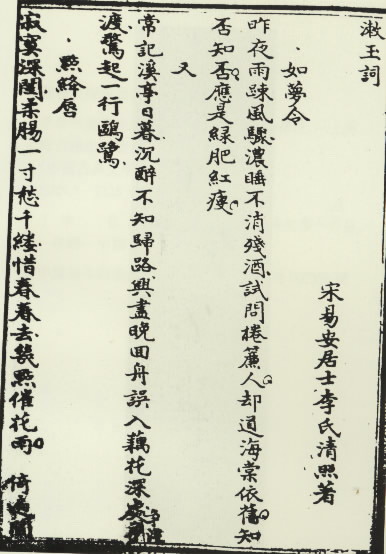 漱玉詞
宋易安居士李氏清照著
如夢令
昨夜雨踈風驟濃睡不消殘酒試問捲簾人却道海棠依舊知
否知否應是綠肥紅瘦
又
常記溪亭日暮沉醉不知歸路興盡晚回舟誤入藕花深處爭渡爭
渡驚起一行鷗鷺
點絳唇
寂寞深閨柔腸一寸愁千縷惜春春去幾點催花雨 倚遍闌